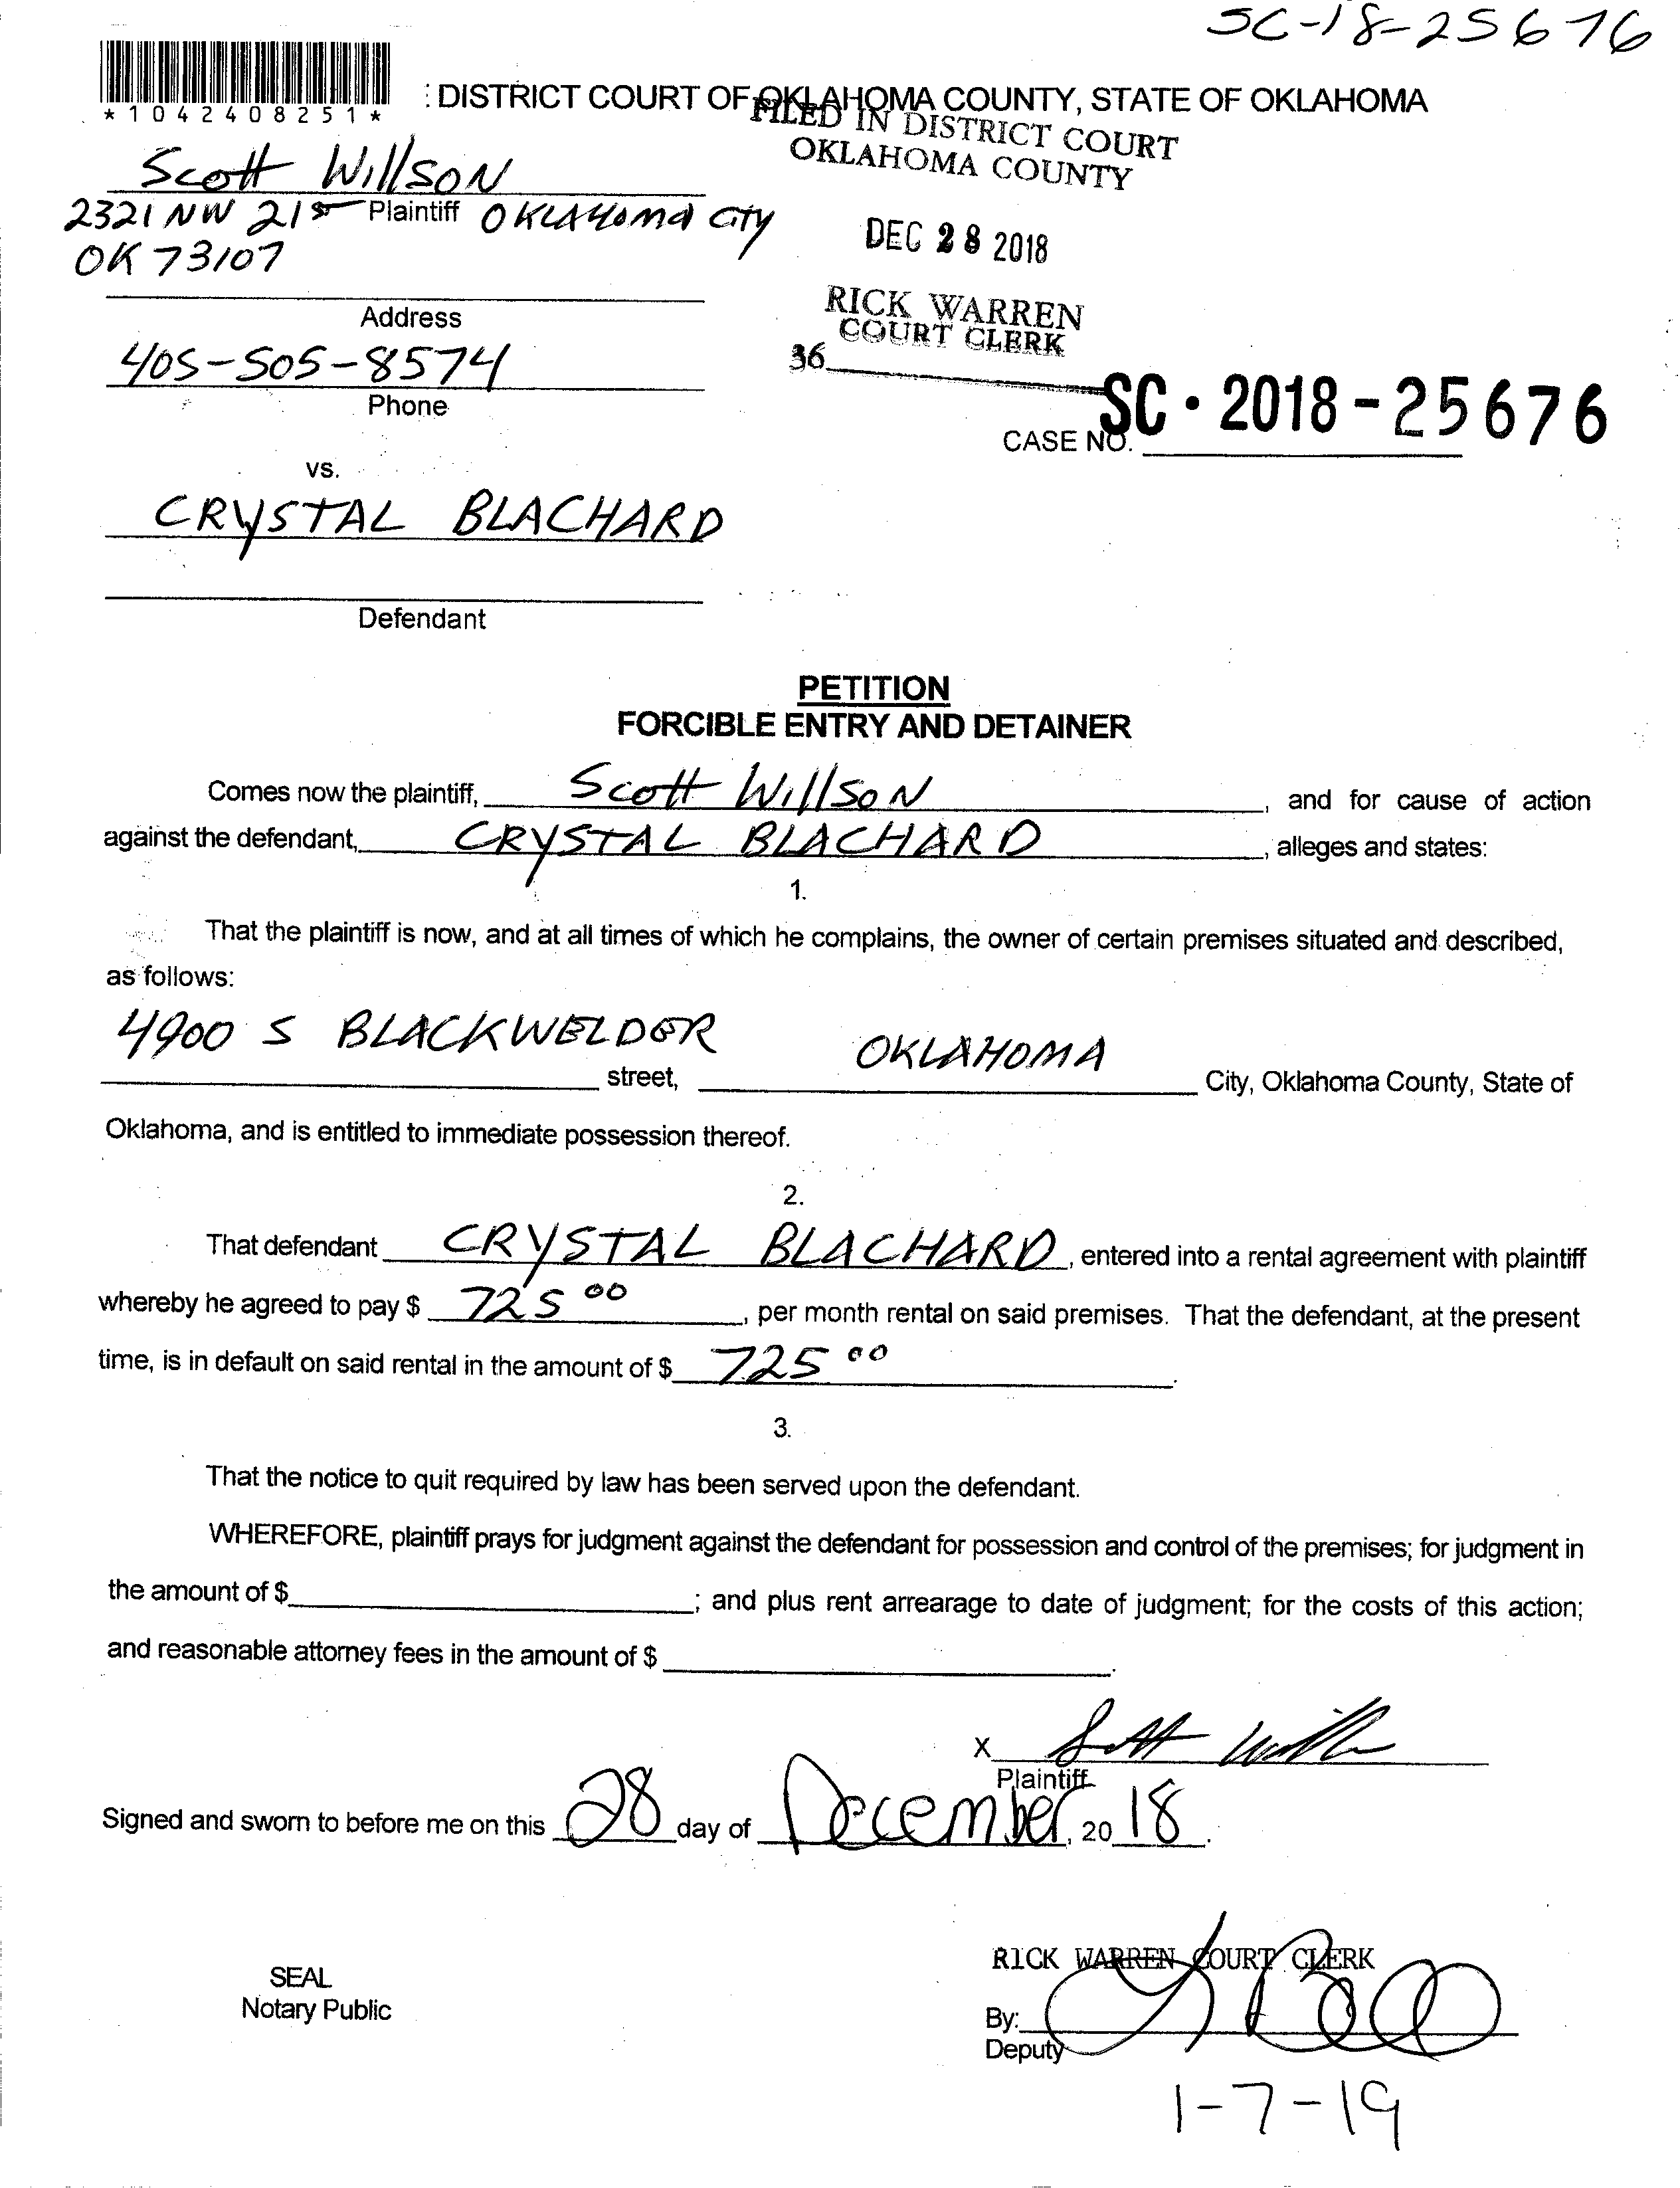 SC-18-25676
*1042408251*
: DISTRICT COURT OF OKLAHOMA COUNTY, STATE OF OKLAHOMA
FILED IN DISTRICT COURT
OKLAHOMA COUNTY
Scott Willson
Plaintiff
2321 NW 21st OKLAHOMA City
OK 73107
DEC 28 2018
Address
RICK WARREN
COURT CLERK
36
405-505-8574
Phone
CASE NO. SC - 2018 - 25676
vs.
CRYSTAL BLACHARD
Defendant
PETITION
FORCIBLE ENTRY AND DETAINER
Comes now the plaintiff, Scott Willson, and for cause of action
against the defendant, CRYSTAL BLACHARD, alleges and states:
1.
That the plaintiff is now, and at all times of which he complains, the owner of certain premises situated and described,
as follows:
4900 S BLACKWELDER street, OKLAHOMA City, Oklahoma County, State of
Oklahoma, and is entitled to immediate possession thereof.
2.
That defendant CRYSTAL BLACHARD, entered into a rental agreement with plaintiff
whereby he agreed to pay $ 725 00, per month rental on said premises. That the defendant, at the present
time, is in default on said rental in the amount of $ 725 00.
3.
That the notice to quit required by law has been served upon the defendant.
WHEREFORE, plaintiff prays for judgment against the defendant for possession and control of the premises; for judgment in
the amount of $ ; and plus rent arrearage to date of judgment; for the costs of this action;
and reasonable attorney fees in the amount of $ .
X
Plaintiff
Signed and sworn to before me on this 28 day of December, 20 18.
RICK WARREN COURT CLERK
SEAL
Notary Public
By:
Deputy
1-7-19